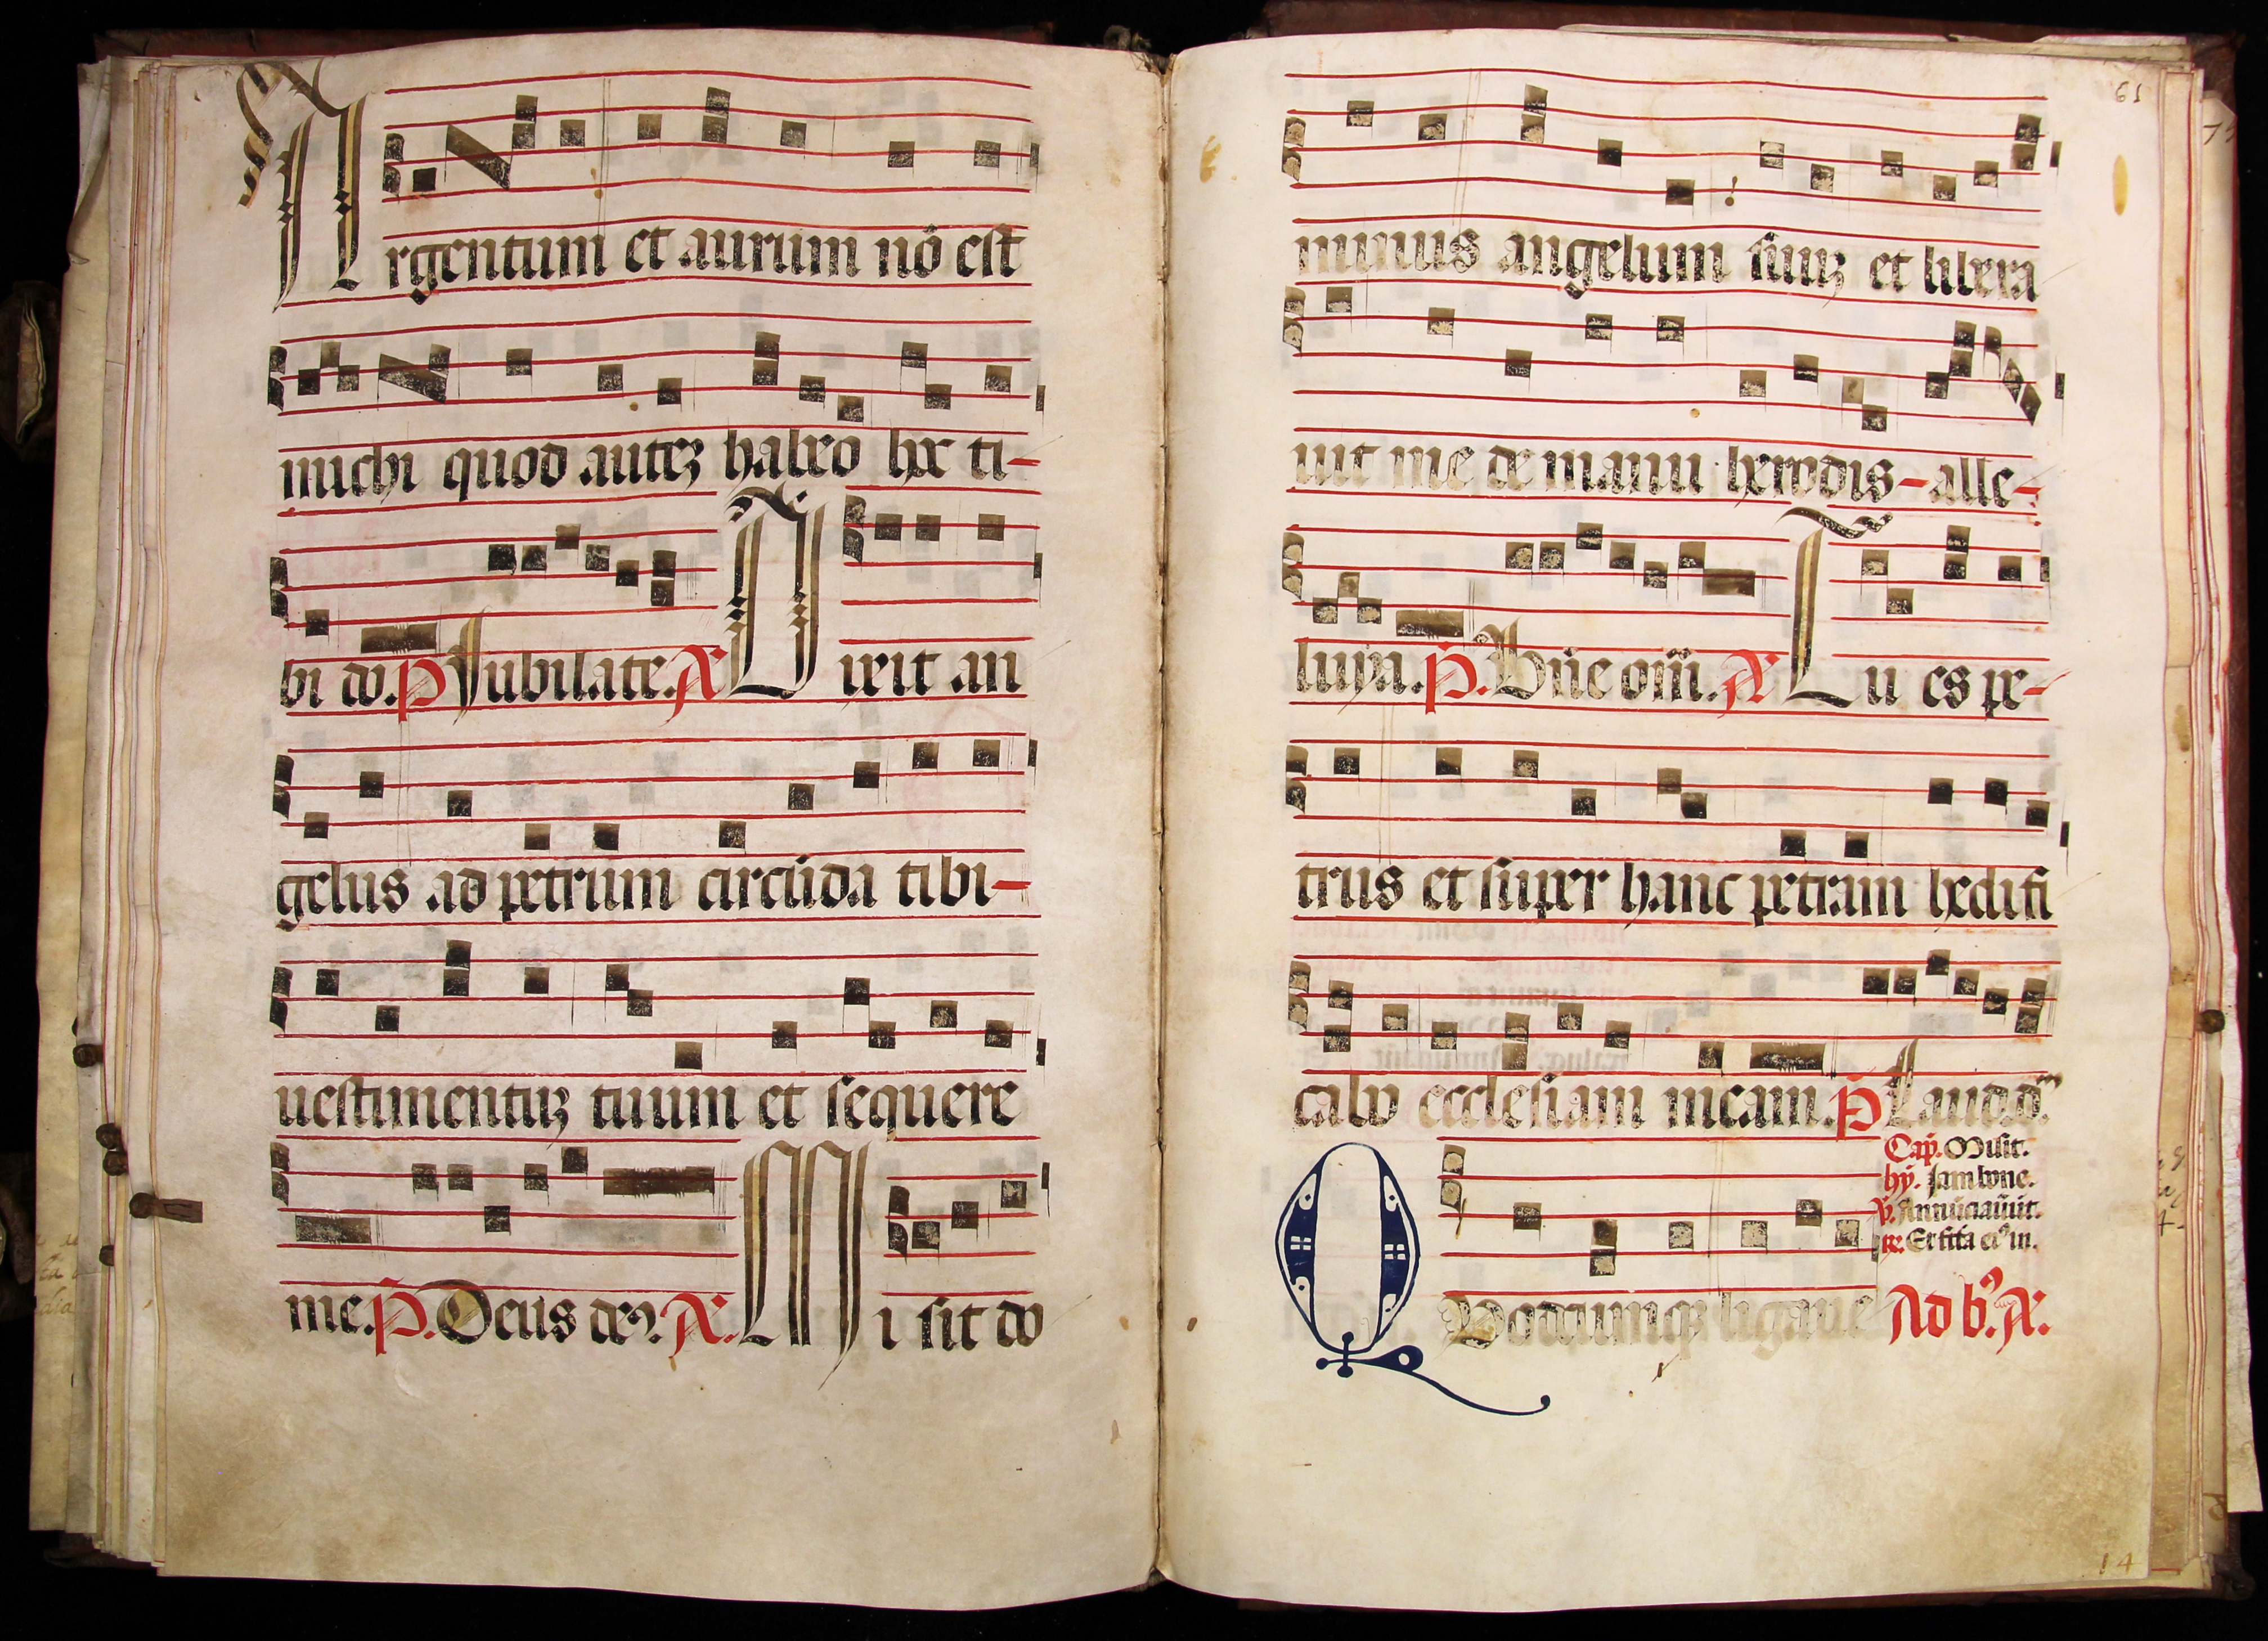 Argentum et aurum nõ est
michi quod autez habeo hoc ti-
bi do. P̃ Jubilate. A. Dixit an
gelus ad petrum circũda tibi-
uestimentuz tuum et sequere
me. P̃. Deus de9. A. Mi sit do
61
minus angelum suuz et libera
uit me de manu herodis - alle-
luya. P̃. Bñe om̃. A. Tu es pe-
trus et super hanc petram hedifi
cabo ecclesiam meam. P̃ Laud. d.
Cap̃. Misit.
hỹ. Jam bone.
Annũciaũit.
Et fc̃a ei9 in.
Quodcunqz ligaue Ad b. A.
14